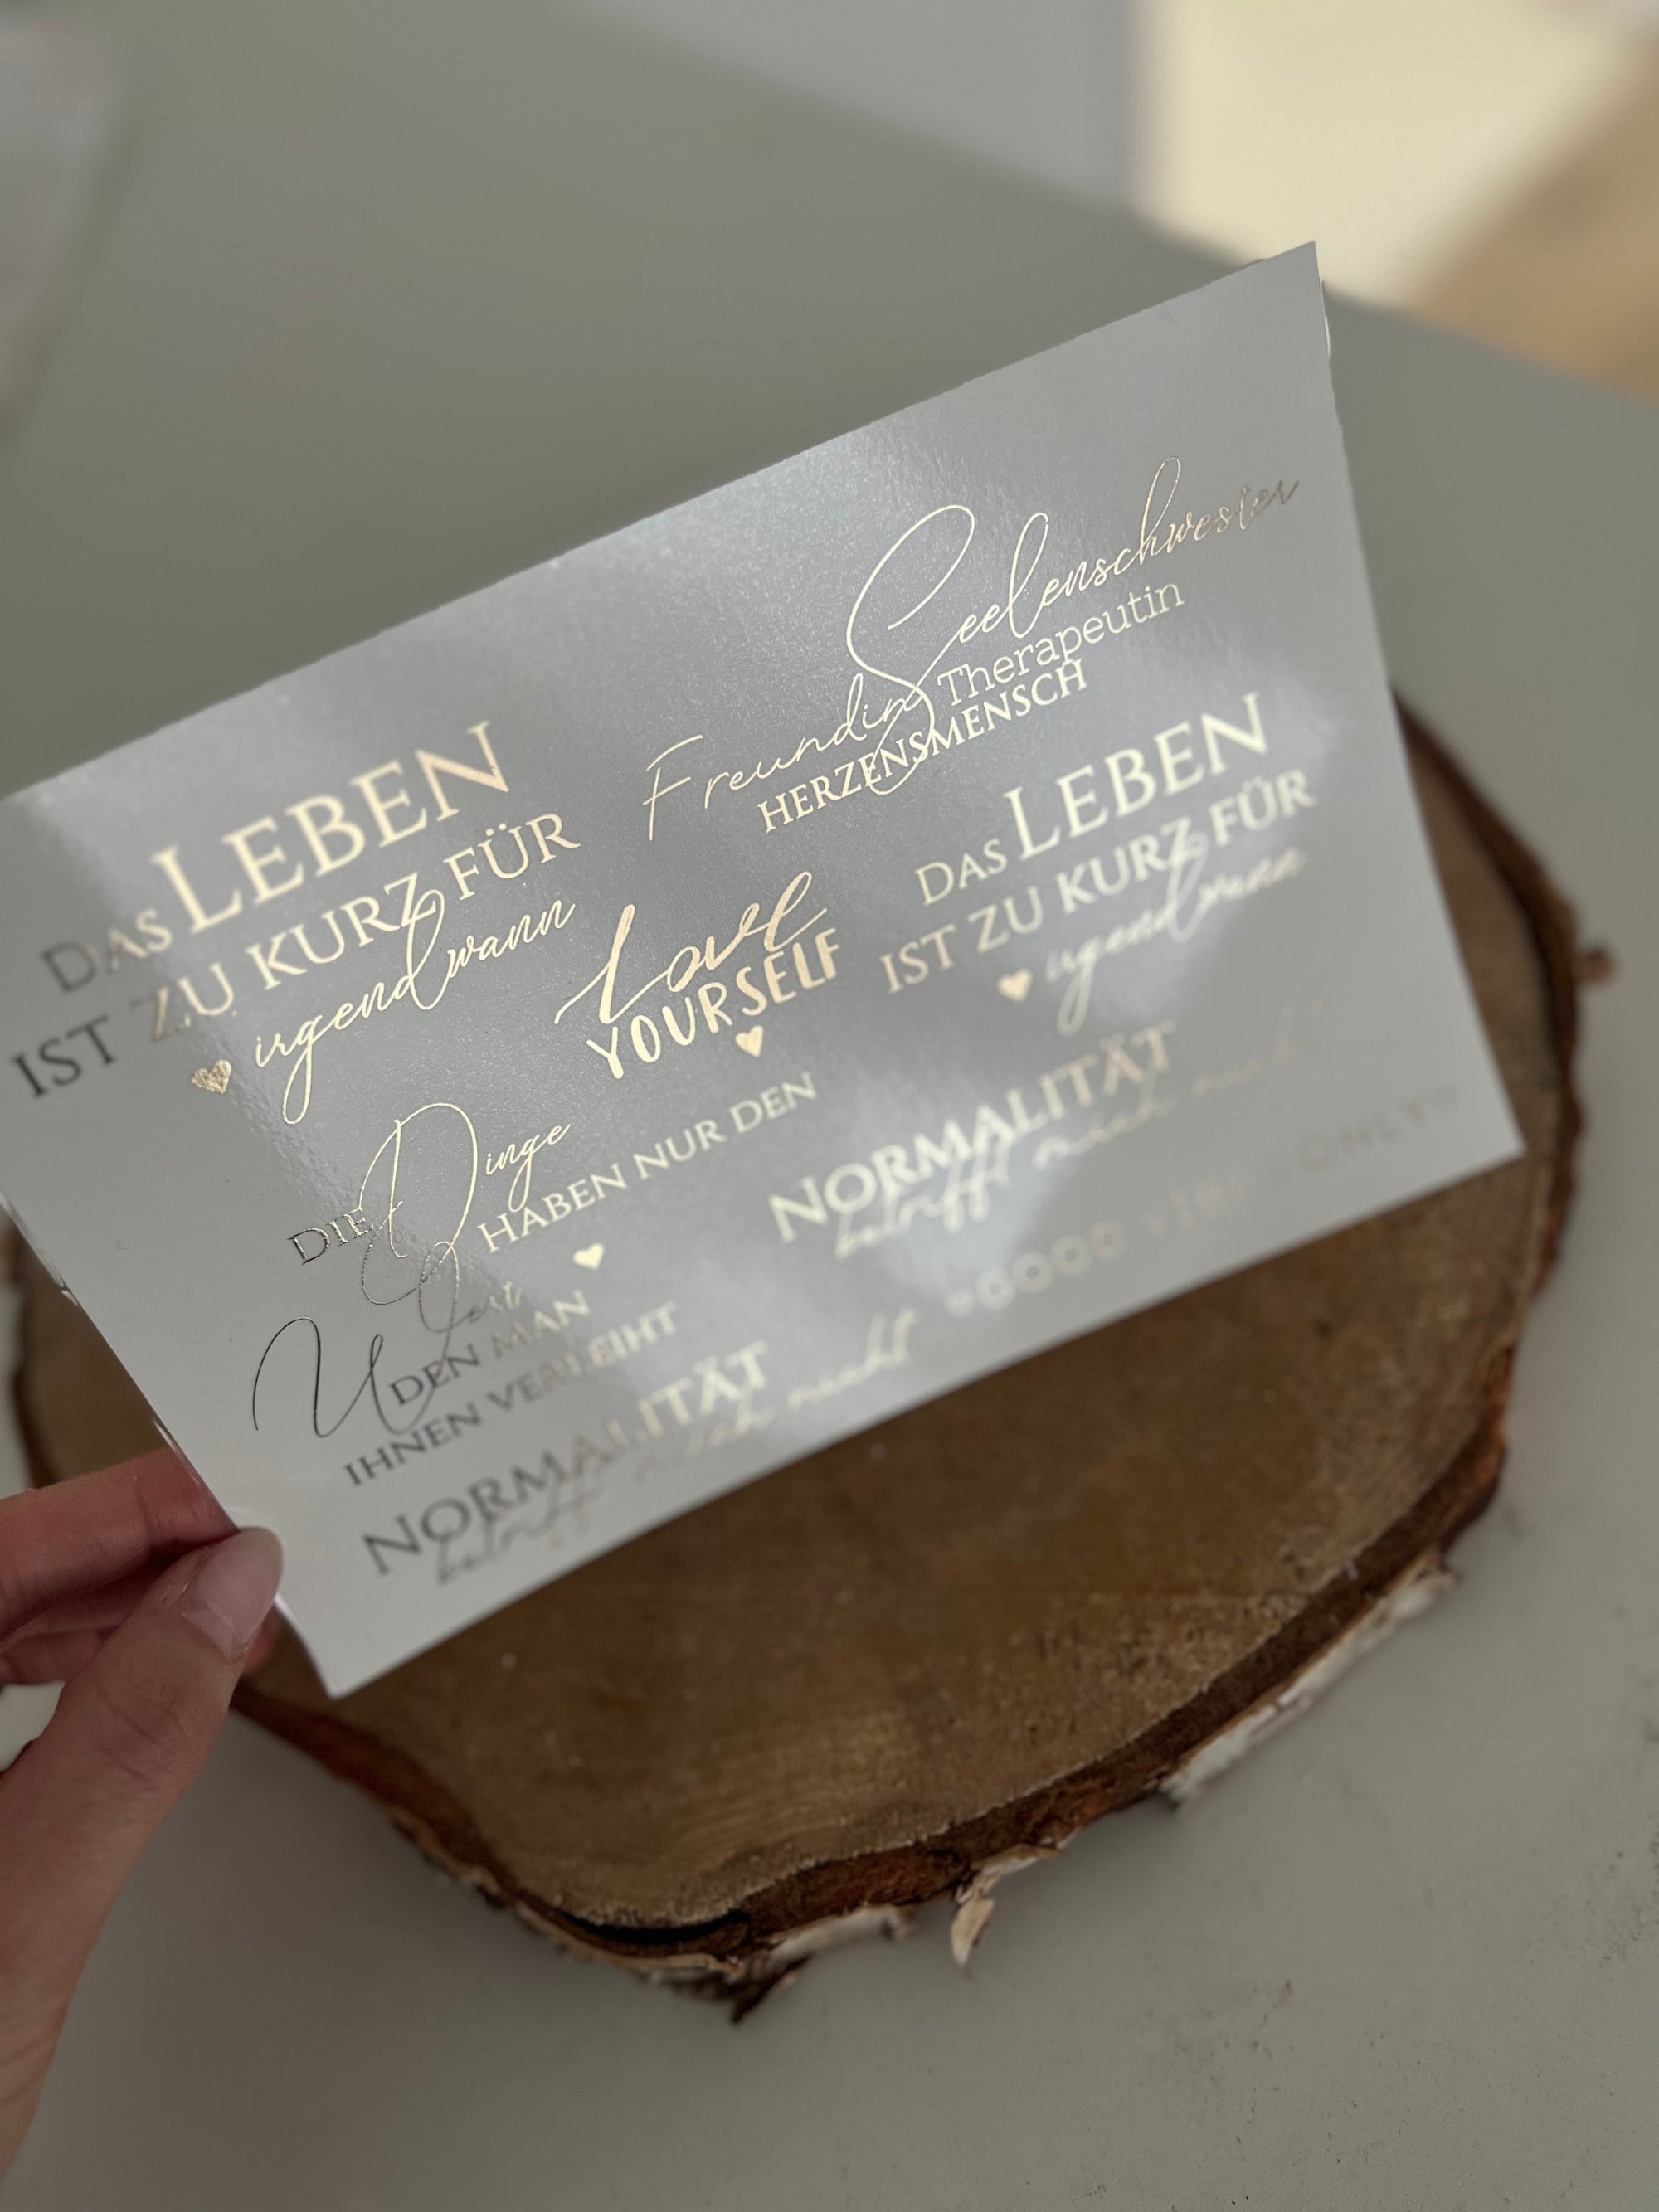 Seelenschwester
Freundin Therapeutin
HERZENSMENSCH
DAS LEBEN
IST ZU KURZ FÜR
irgendwann
Love
YOURSELF
DAS LEBEN
IST ZU KURZ FÜR
irgendwann
DIE Dinge
HABEN NUR DEN
Wert
DEN MAN
IHNEN VERLEIHT
NORMALITÄT
betrifft mich nicht
NORMALITÄT
betrifft mich nicht
GOOD VIBES ONLY